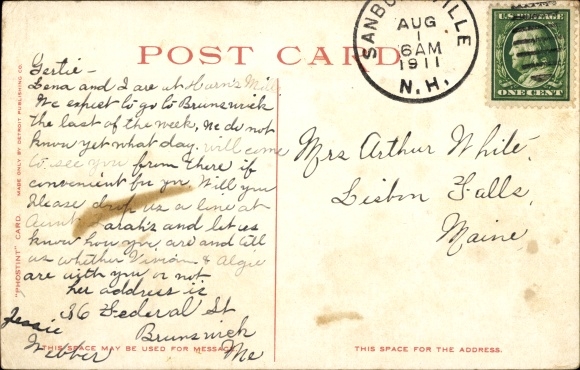 POST CARD
SANBO VILLE
AUG
1
6AM
1911
N.H.
U.S. POSTAGE
ONE CENT
Gertie -
Lena and I are at Horn's Mill
We expect to go to Brunswick
the last of the week, we do not
know yet what day. will come
to see you from there if
convenient for you. Will you
Please drop us a line at
Aunt Sarah's and let us
know how you are and tell
us whether Vivian & Algie
are with you or not
her address is
36 Federal St
Brunswick
Me
Jessie
Webber
Mrs Arthur White.
Lisbon Falls,
Maine
"PHOSTINT" CARD. MADE ONLY BY DETROIT PUBLISHING CO.
THIS SPACE MAY BE USED FOR MESSAGE.
THIS SPACE FOR THE ADDRESS.